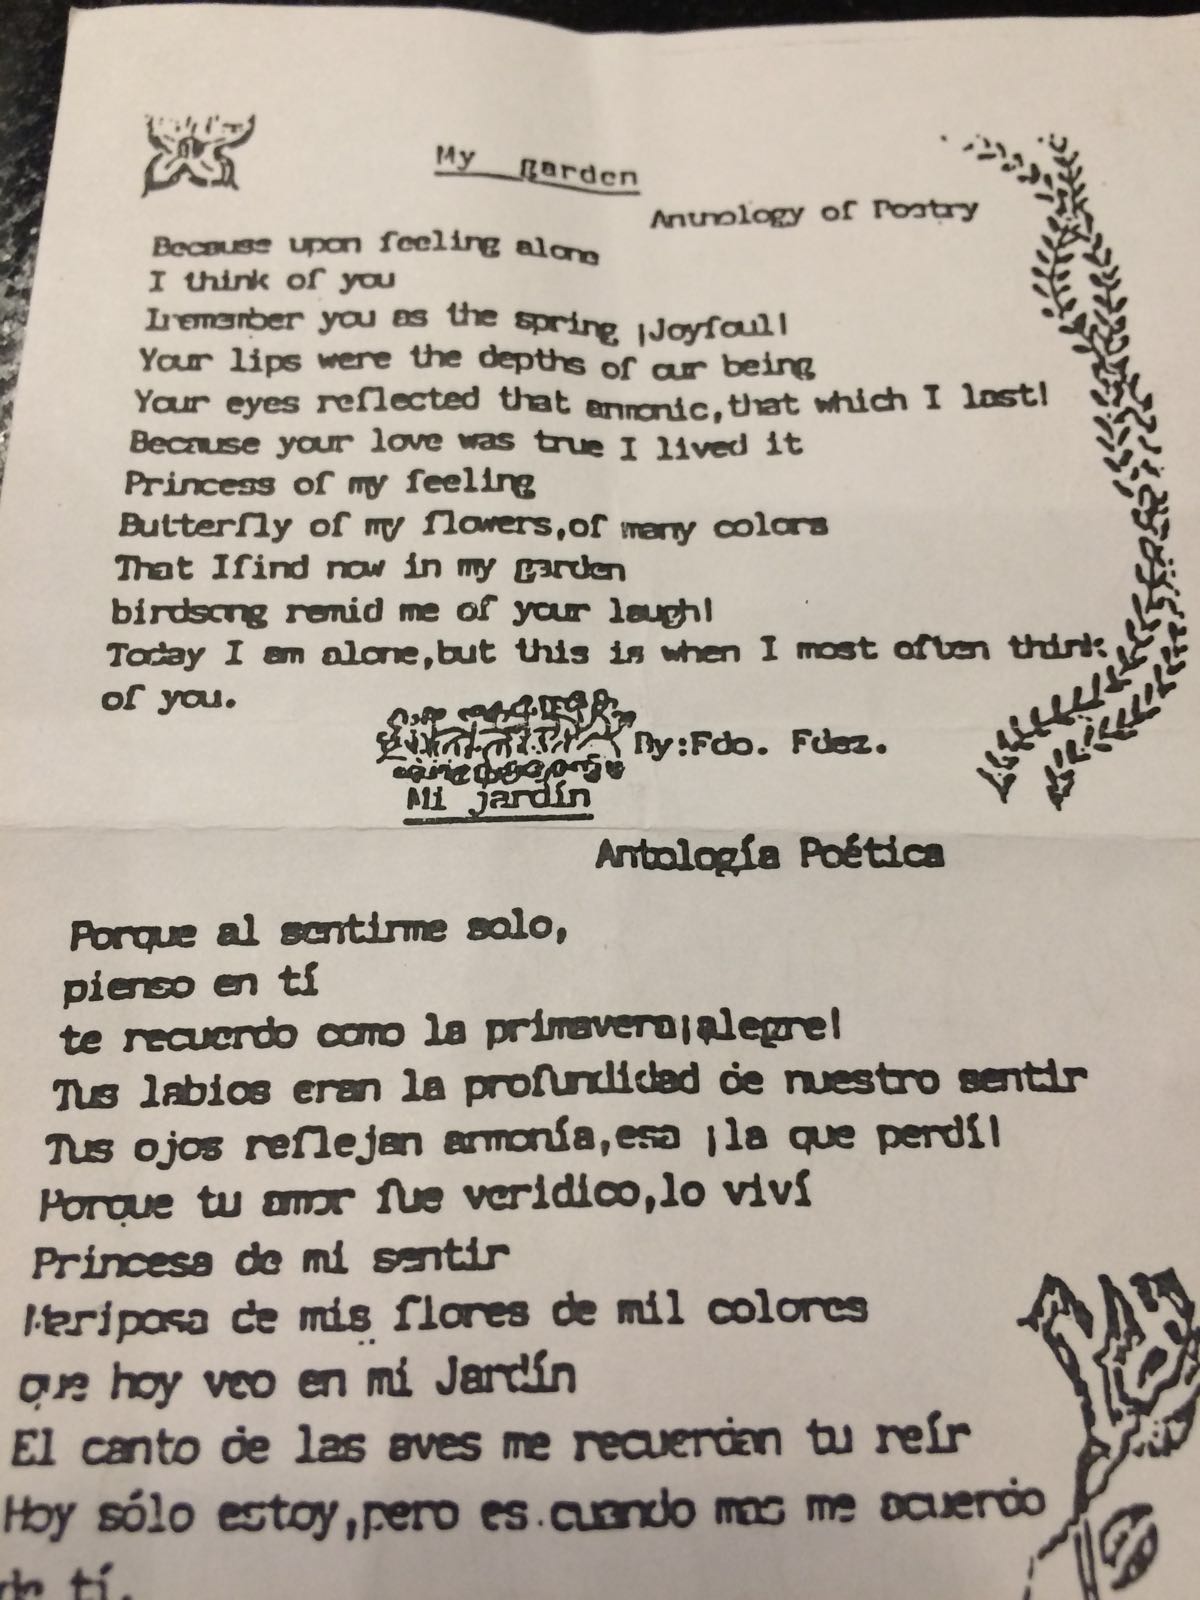 My garden
Anthology of Poetry
Because upon feeling alone
I think of you
I remember you as the spring ¡Joyfoul!
Your lips were the depths of our being
Your eyes reflected that armonic,that which I lost!
Because your love was true I lived it
Princess of my feeling
Butterfly of my flowers,of many colors
That Ifind now in my garden
birdsong remid me of your laugh!
Today I am alone,but this is when I most often think
of you.
By:Fdo. Fdez.
Mi jardín
Antología Poética
Porque al sentirme solo,
pienso en tí
te recuerdo como la primavera¡alegre!
Tus labios eran la profundidad de nuestro sentir
Tus ojos reflejan armonía,esa ¡la que perdí!
Porque tu amor fue veridico,lo viví
Princesa de mi sentir
Mariposa de mis flores de mil colores
que hoy veo en mi Jardín
El canto de las aves me recuerdan tu reír
Hoy sólo estoy,pero es.cuando mas me acuerdo
de tí.